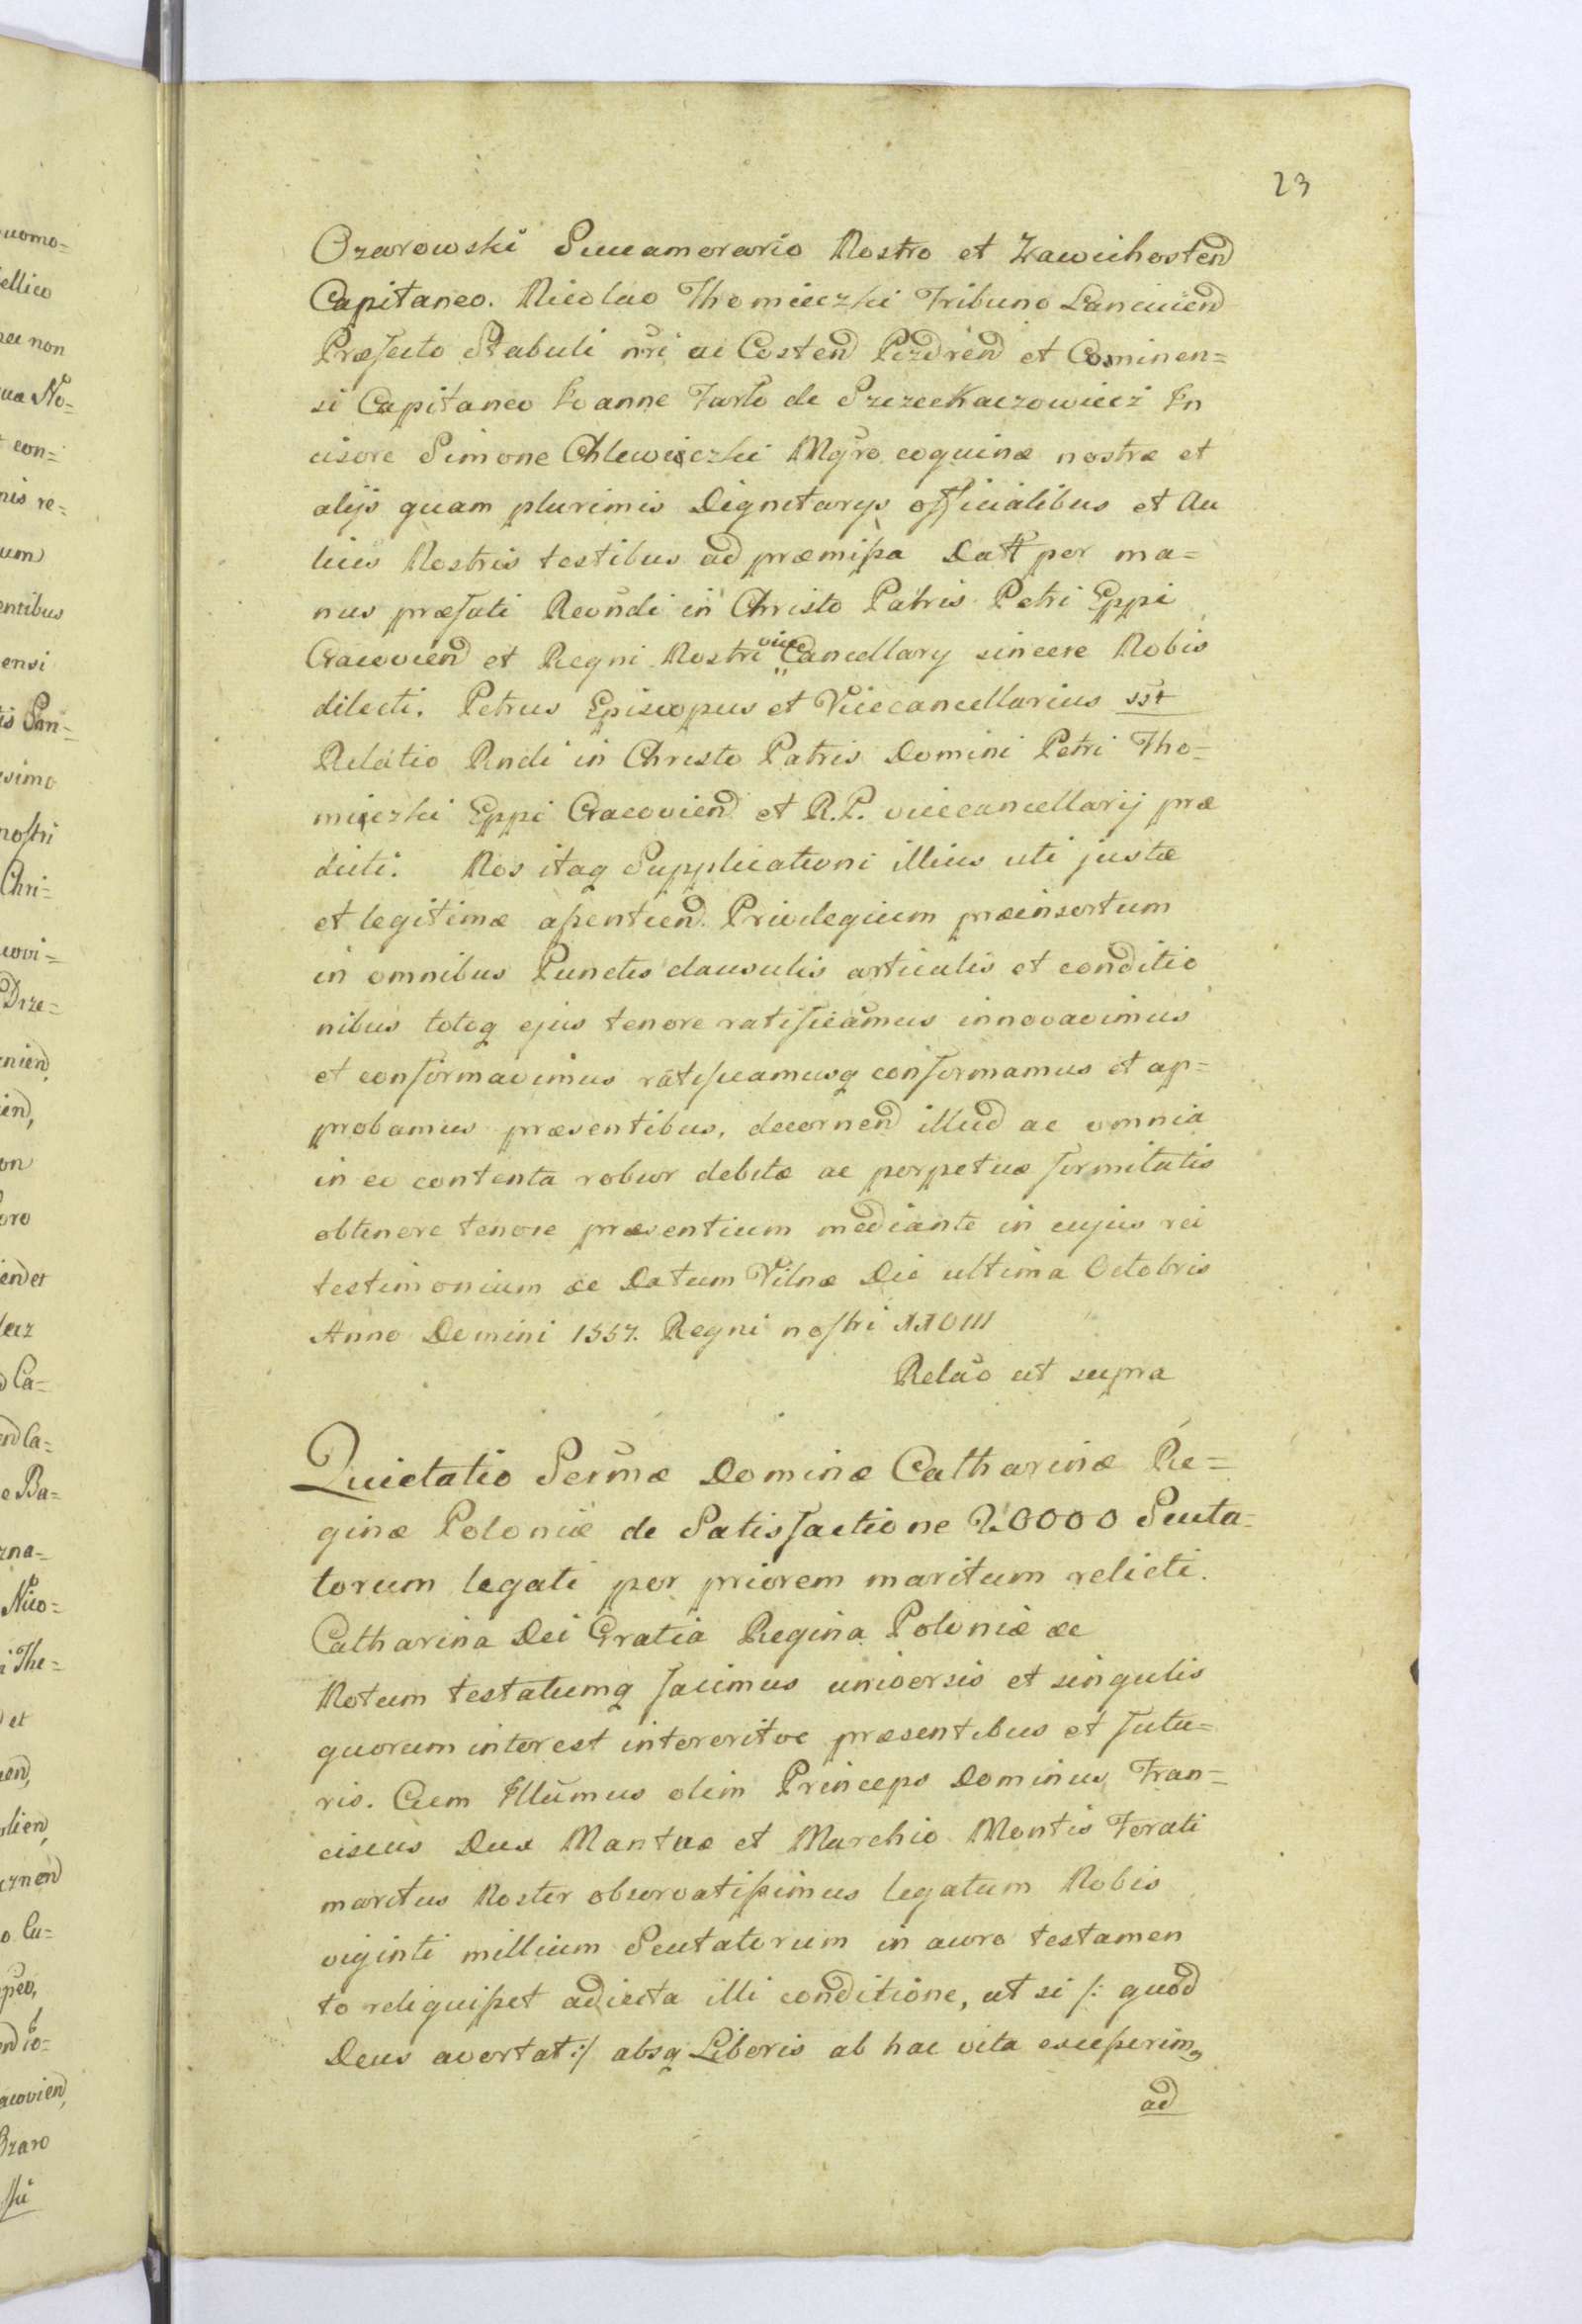 23
Ozarowski Succamerario Nostro et Zawichosten
Capitaneo. Nicolao Thomieczki Tribuno Lancicien
Præfecto Stabuli nri ac Costen Pizdren et Cosminen=
si Capitaneo Joanne Tarlo de Szczekaczowicz In
cisore Simone Chlewiczki Mgro coquinæ nostræ et
alijs quam plurimis Dignitarys officialibus et Au
licis Nostris testibus ad præmissa Datt per ma=
nus præfati Reundi in Christo Patris Petri Eppi
Cracovien et Regni Nostri vice Cancellary sincere Nobis
dilecti. Petrus Episcopus et Vicecancellarius sst
Relatio Rndi in Christo Patris Domini Petri Tho=
miczki Eppi Cracovien et R.P. vicecancellarij præ
dicti. Nos itaq Supplicationi illius uti justæ
et legitimæ assentien. Privilegium præinsertum
in omnibus Punctis clausulis articulis et conditio
nibus totoq ejus tenore ratificamus innovavimus
et confirmavimus ratificamusq confirmamus et ap=
probamus præsentibus, decernen illud ac omnia
in eo contenta robur debitæ ac perpetuæ firmitatis
obtinere tenore præsentium mediante in cujus rei
testimonium &c Datum Vilnæ Die ultima Octobris
Anno Domini 1557. Regni nostri XXVIII
Relao ut supra
Quietatio Sermæ Dominæ Catharinæ Re=
ginæ Poloniæ de Satisfactione 20000 Scuta=
torum legati per priorem maritum relicti.
Catharina Dei Gratia Regina Poloniæ &c
Notum testatumq facimus universis et singulis
quorum interest intereritve præsentibus et futu=
ris. Cum Illumus olim Princeps Dominus Fran=
ciscus Dux Mantuæ et Marchio Montis Ferati
maritus Noster observatissimus legatum Nobis
viginti millium Scutatorum in auro testamen
to reliquisset adiecta illi conditione, ut si /: quod
Deus avertat :/ absq Liberis ab hac vita excesserim,
ad